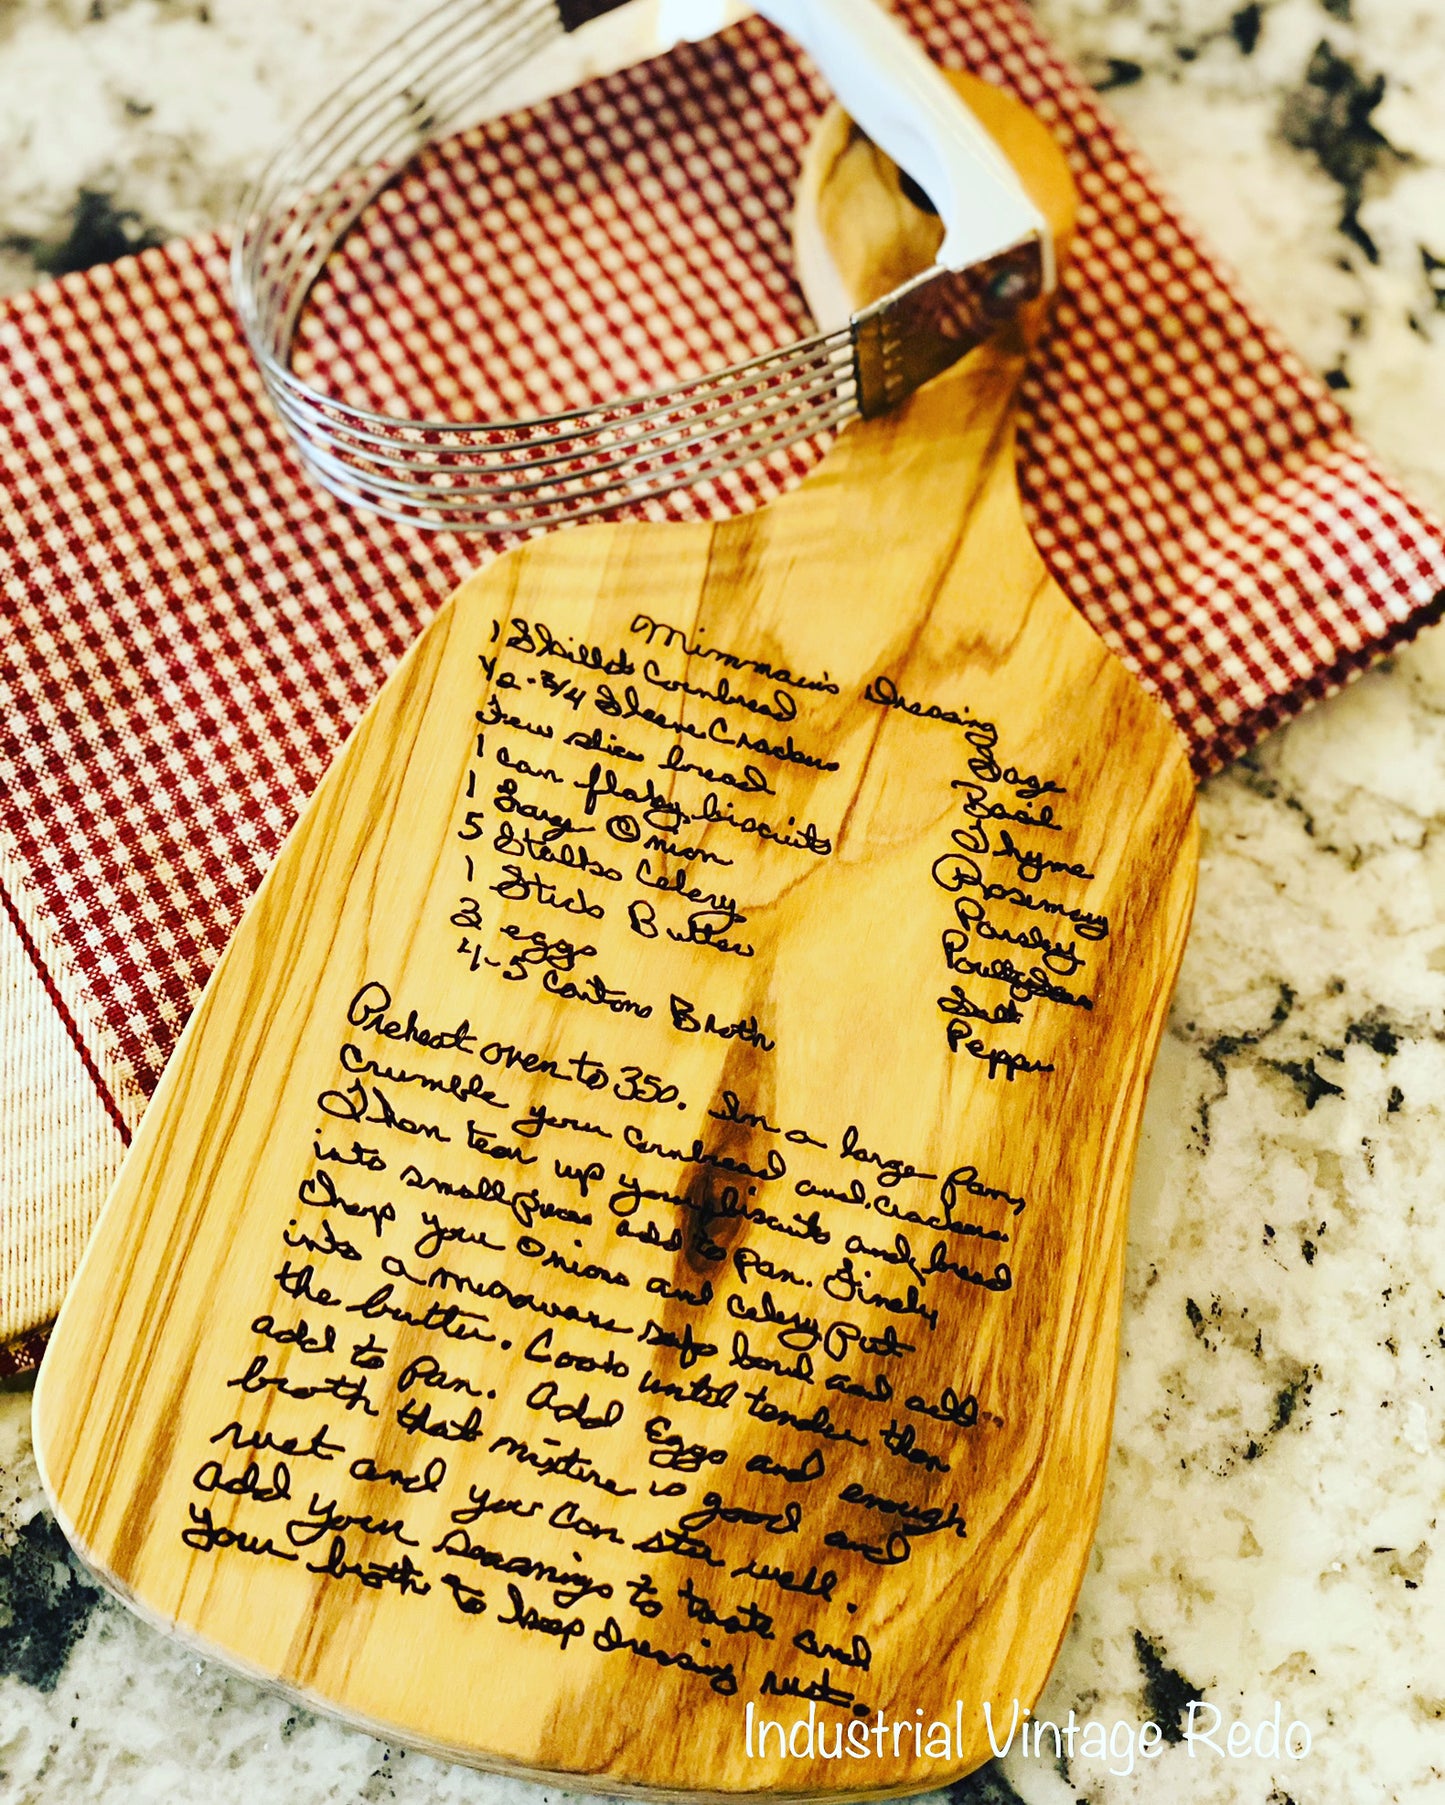 Mimmaw's Dressing
1 Skillet Cornbread
1/2-3/4 Sleeve Crackers
Few slices bread
1 can flaky biscuits
1 Large Onion
5 Stalks Celery
1 Stick Butter
3 eggs
4-5 Cartons Broth
Sage
Basil
Thyme
Rosemary
Parsley
Poultry Seas
Salt
Pepper
Preheat oven to 350. In a large pan,
crumble your cornbread and crackers.
Then tear up your biscuits and bread
into small pieces add to pan. Finely
Chop your Onions and Celery. Put
into a microwave safe bowl and add
the butter. Cook until tender then
add to Pan. Add Eggs and enough
broth that mixture is good and
wet and you can stir well.
Add your Seasonings to taste and
your broth to keep dressing wet.
Industrial Vintage Redo